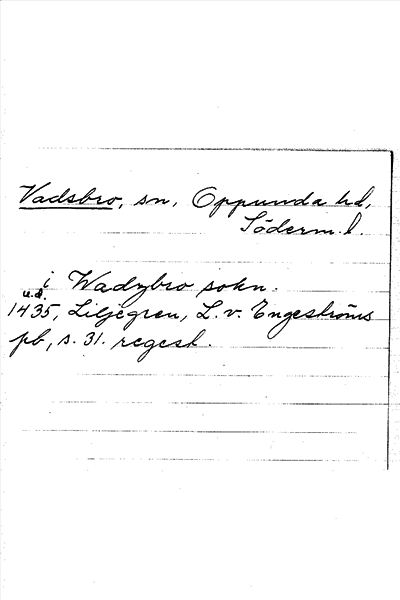 Vadsbro, sn, Oppunda hd,
Söderm.l.
i Wadzbro sokn.
u.d.
1435, Liljegren, L. v. Engeströms
pb, s. 31. regest.